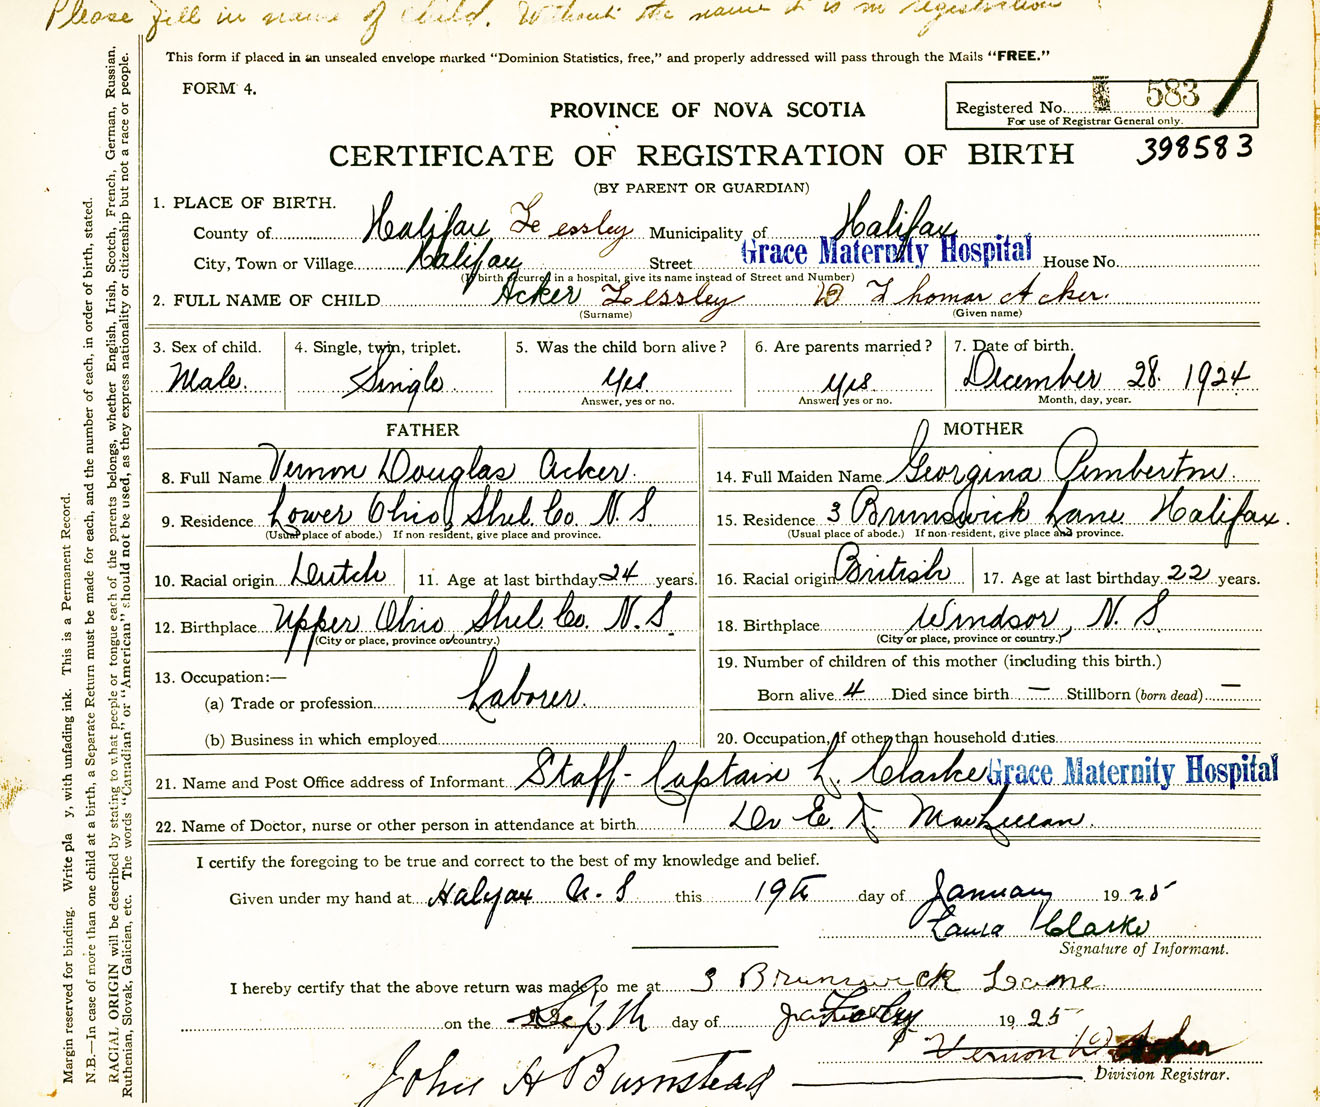 Please fill in name of Child. Without the name it is no registration
This form if placed in an unsealed envelope marked "Dominion Statistics, free," and properly addressed will pass through the Mails "FREE."
FORM 4.
Registered No. 583
For use of Registrar General only.
PROVINCE OF NOVA SCOTIA
398583
CERTIFICATE OF REGISTRATION OF BIRTH
(BY PARENT OR GUARDIAN)
1. PLACE OF BIRTH.
County of Halifax Lessley Municipality of Halifax
City, Town or Village Halifax Street Grace Maternity Hospital House No.
(If birth occurred in a hospital, give its name instead of Street and Number)
2. FULL NAME OF CHILD Acker Lessley Thomas Acker.
(Surname) (Given name)
3. Sex of child. 4. Single, twin, triplet. 5. Was the child born alive? 6. Are parents married? 7. Date of birth.
Male. Single Yes Yes December 28. 1924
Answer, yes or no. Answer, yes or no. Month, day, year.
FATHER
8. Full Name Vernon Douglas Acker.
9. Residence Lower Ohio, Shel. Co. N. S
(Usual place of abode.) If non resident, give place and province.
10. Racial origin Dutch 11. Age at last birthday 24 years.
12. Birthplace Upper Ohio Shel. Co. N. S.
(City or place, province or country.)
13. Occupation:—
(a) Trade or profession Laborer.
(b) Business in which employed
MOTHER
14. Full Maiden Name Georgina Pemberton.
15. Residence 3 Brunswick Lane Halifax.
(Usual place of abode.) If non-resident, give place and province.
16. Racial origin British 17. Age at last birthday 22 years.
18. Birthplace Windsor, N. S
(City or place, province or country.)
19. Number of children of this mother (including this birth.)
Born alive 4 Died since birth — Stillborn (born dead) —
20. Occupation, if other than household duties
21. Name and Post Office address of Informant Staff-Captain L. Clarke Grace Maternity Hospital
22. Name of Doctor, nurse or other person in attendance at birth Dr E. F. MacLellan.
I certify the foregoing to be true and correct to the best of my knowledge and belief.
Given under my hand at Halifax N. S this 19th day of January 1925
Laura Clarke
Signature of Informant.
I hereby certify that the above return was made to me at 3 Brunswick Lane
on the day of 1925
Vernon
John H Burnstead Division Registrar.
Margin reserved for binding. Write pla y, with unfading ink. This is a Permanent Record.
N.B.—In case of more than one child at a birth, a Separate Return must be made for each, and the number of each, in order of birth, stated.
RACIAL ORIGIN will be described by stating to what people or tongue each of the parents belongs, whether English, Irish, Scotch, French, German, Russian,
Ruthenian, Slovak, Galician, etc. The words "Canadian" or "American" should not be used, as they express nationality or citizenship but not a race or people.